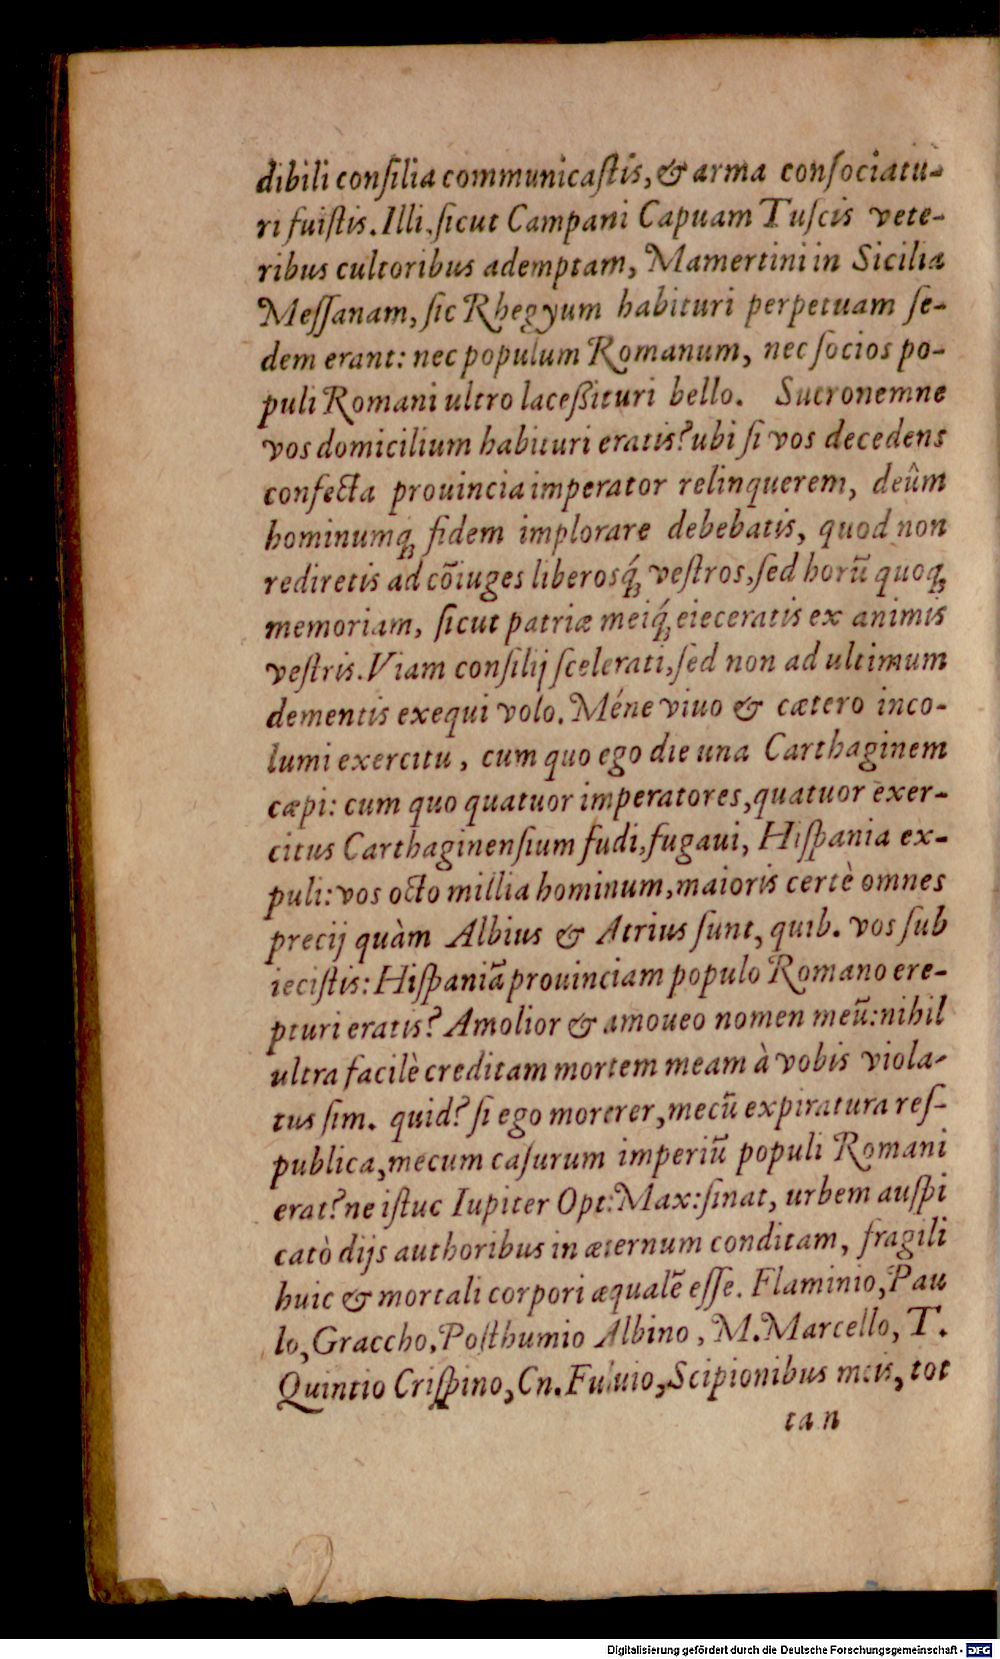 dibili conſilia communicaſtis, & arma conſociatu-
ri fuiſtis. Illi, ſicut Campani Capuam Tuſcis vete-
ribus cultoribus ademptam, Mamertini in Sicilia
Meſſanam, ſic Rhegyum habituri perpetuam ſe-
dem erant: nec populum Romanum, nec ſocios po-
puli Romani ultro laceßituri bello. Sucronemne
vos domicilium habituri eratis? ubi ſi vos decedens
confecta prouincia imperator relinquerem, deûm
hominumq́ꝫ fidem implorare debebatis, quod non
rediretis ad cõiuges liberosq́ꝫ veſtros, ſed horũ quoqꝫ
memoriam, ſicut patriæ meiq́ꝫ eieceratis ex animis
veſtris. Viam conſilij ſcelerati, ſed non ad ultimum
dementis exequi volo. Méne viuo & cætero inco-
lumi exercitu, cum quo ego die una Carthaginem
cæpi: cum quo quatuor imperatores, quatuor exer-
citus Carthaginenſium fudi, fugaui, Hiſpania ex-
puli: vos octo millia hominum, maioris certè omnes
precij quàm Albius & Atrius ſunt, quib. vos ſub
ieciſtis: Hiſpaniã prouinciam populo Romano ere-
pturi eratis? Amolior & amoueo nomen meũ: nihil
ultra facilè creditam mortem meam à vobis viola-
tus ſim. quid? ſi ego morerer, mecũ expiratura reſ-
publica, mecum caſurum imperiũ populi Romani
erat? ne iſtuc Iupiter Opt: Max: ſinat, urbem auſpi
catò dijs authoribus in æternum conditam, fragili
huic & mortali corpori æqualẽ eſſe. Flaminio, Pau
lo, Graccho, Poſthumio Albino, M. Marcello, T.
Quintio Criſpino, Cn. Fuluio, Scipionibus meis, tot
tan
Digitalisierung gefördert durch die Deutsche Forschungsgemeinschaft - DFG